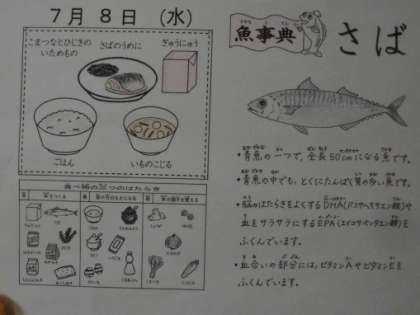 7月 8日 (水)
こまつなとひじきの
いためもの
さばのうめに
ぎゅうにゅう
ごはん
いものこじる
食べ物の3つのはたらき
魚事典
さば
・青魚の一つで、全長50cmになる魚です。
・青魚の中でも、とくにたんぱく質の多い魚です。
・脳のはたらきをよくするDHA(ドコサヘキサエン酸)や
血をサラサラにするEPA(エイコサペンタエン酸)を
ふくんでいます。
・血合いの部分には、ビタミンAやビタミンEを
ふくんでいます。